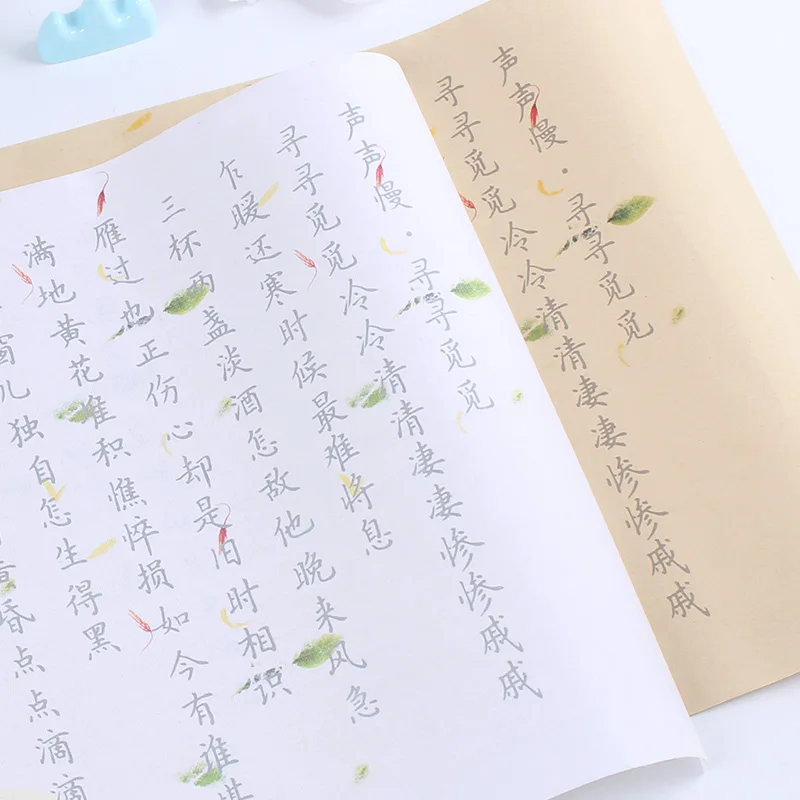 声声慢·寻寻觅觅
寻寻觅觅冷冷清清凄凄惨惨戚戚
声声慢·寻寻觅觅
寻寻觅觅冷冷清清凄凄惨惨戚戚
乍暖还寒时候最难将息
三杯两盏淡酒怎敌他晚来风急
雁过也正伤心却是旧时相识
满地黄花堆积憔悴损如今有谁堪
窗儿独自怎生得黑
黄昏点点滴滴